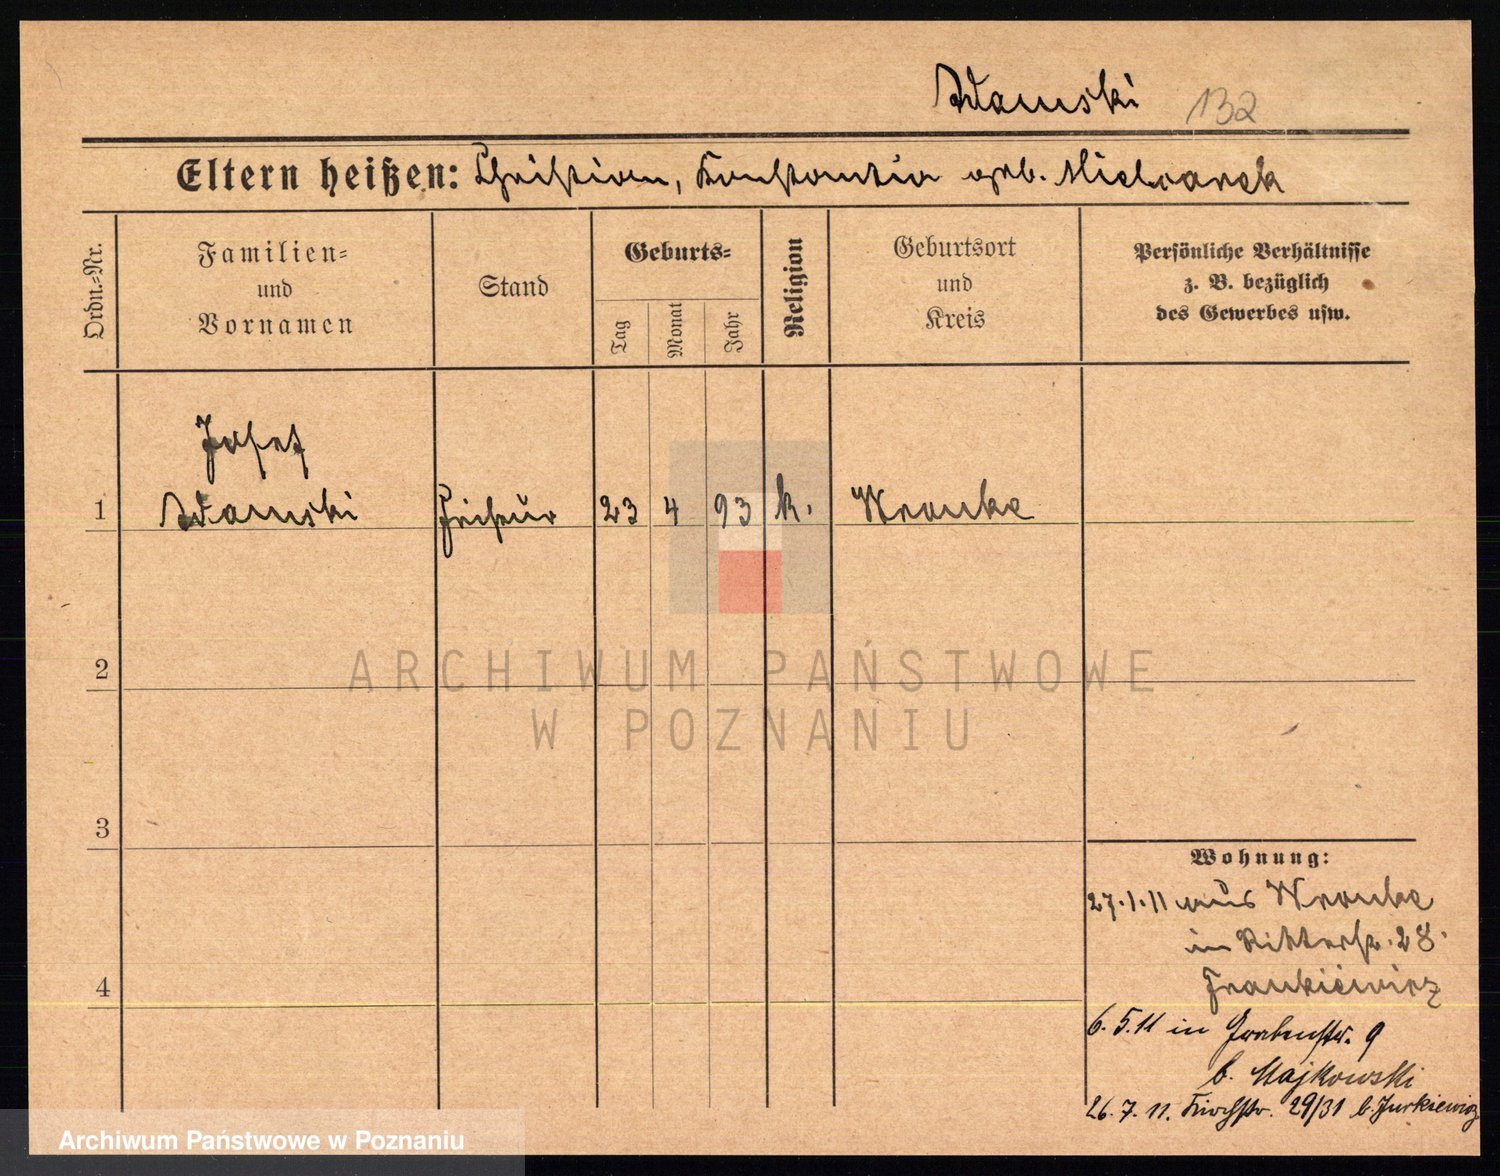 Adamski 132
Eltern heißen: Christian, Konstantia geb. Mielcarek
Ordn.-Nr.
Familien-
und
Vornamen
Stand
Geburts-
Tag
Monat
Jahr
Religion
Geburtsort
und
Kreis
Persönliche Verhältnisse
z. B. bezüglich
des Gewerbes usw.
Josef
1 Adamski Frisör 23 4 93 k. Wronke
2
ARCHIWUM PAŃSTWOWE
W POZNANIU
3
Wohnung:
27.1.11 aus Wronke
in Ritterstr. 28.
Frankiewicz
4
6.5.11 in Grabenstr. 9
b. Majkowski
26.7.11. Kirchstr. 29/31 b. Jurkiewicz
Archiwum Państwowe w Poznaniu